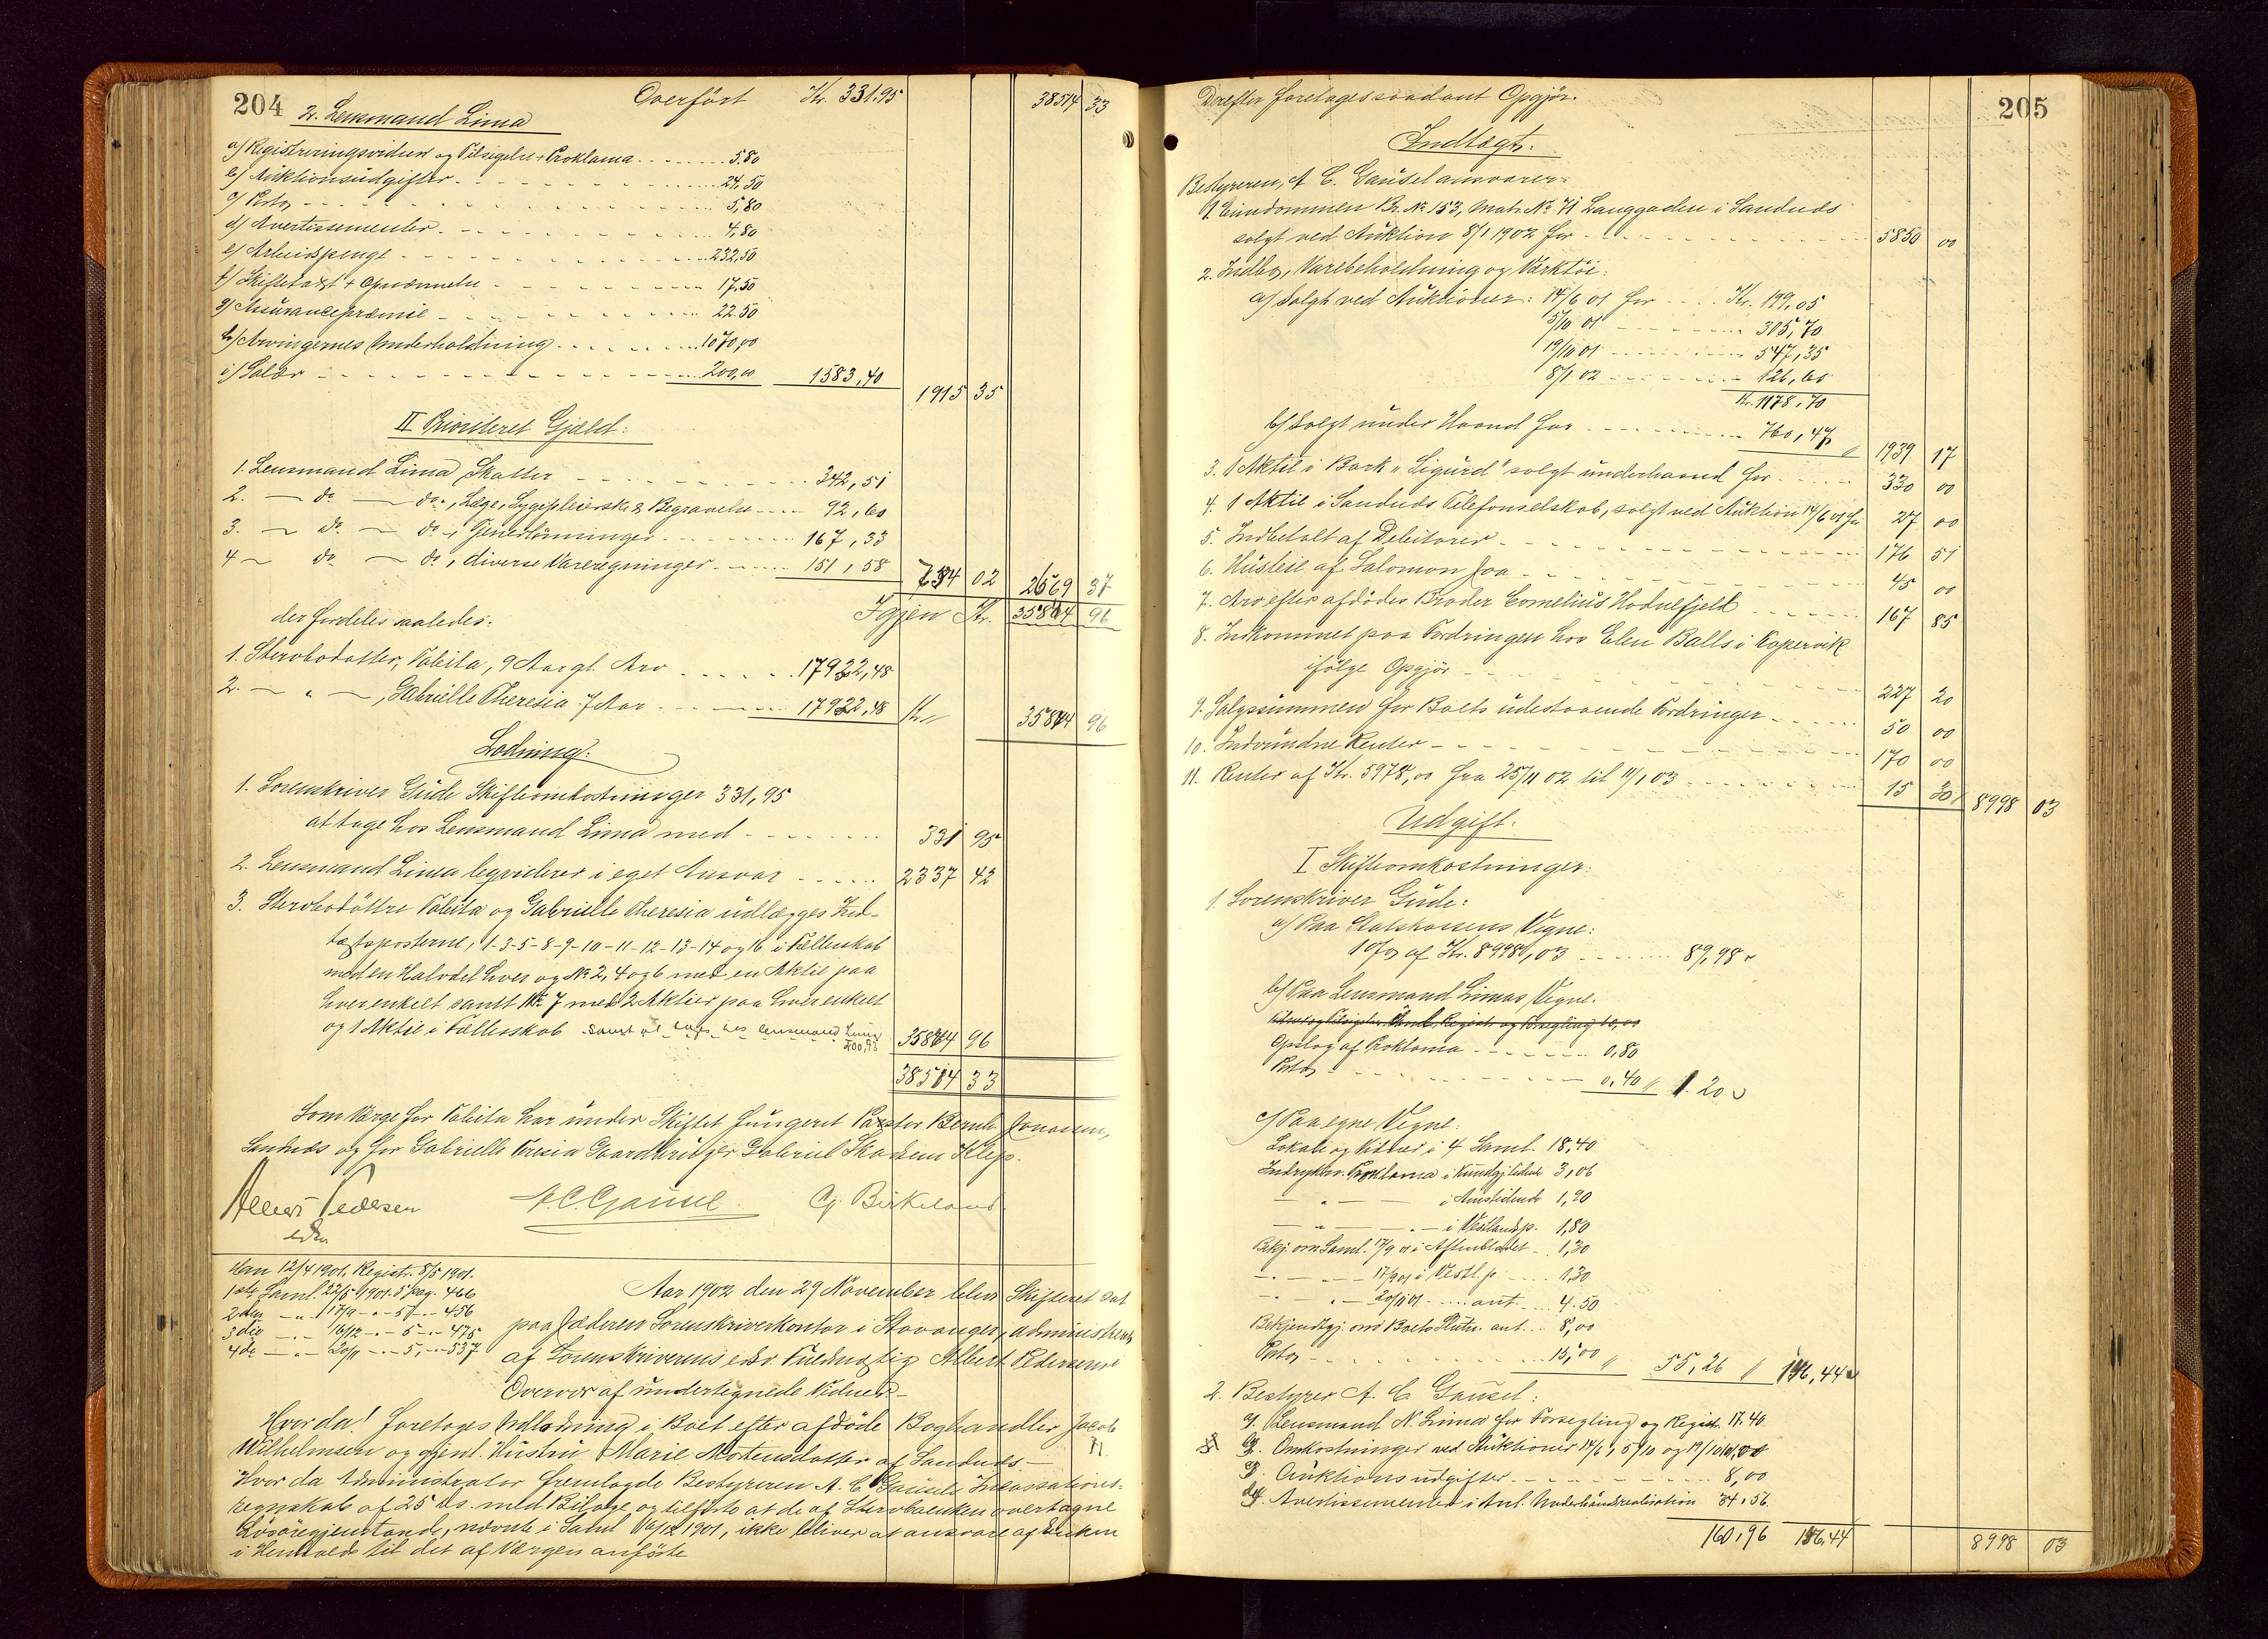 204
Overført Kr. 331.95 38514 33
2. Lensmand Lima
a) Registreringsvidner og Tilsigelse + Proklama 5.80
b) Auktionsudgifter 24,50
c) Porto 5,80
d) Avertissementer 4,80
e) Arbeidspenge 232,50
f) Skiftetaxt + Opnævnelse 17.50
g) Assurancepræmie 22.50
h) Arvingernes Underholdning 1070,00
i) Salær 200,00 1583,40
1915 35
II Prioriteret Gjæld:
1. Lensmand Lima, Skatter 342,51
2. — do — do, Læge, Sygepleierske & Begravelse 92,60
3. — do — do, Tjenerlønninger 167,33
4 — do — do, diverse Vareregninger 151,58 734 02 2669 37
Igjen Kr. 35844 96
der fordeles saaledes:
1. Stervbodatter, Tabita, 9 Aar gl. Arv 17922,48
2. — " —, Gabrielle Theresia 7 Aar 17922,48 Kr 35844 96
Lodning:
1. Sorenskriver Gude Skifteomkostninger 331,95
at tage hos Lensmand Lima med 331 95
2. Lensmand Lima leqviderer i eget Ansvar 2337 42
3. Stervbodøttre Tabita og Gabrielle Theresia udlægges Ind-
tægtsposterne, 1-3-5-8-9-10-11-12-13-14 og 16 i Fællesskab
med en Halvdel hver og No 2, 4 og 6 med en Aktie paa
hver enkelt samt No 7 med 2 Aktier paa hver enkelt
og 1 Aktie i Fællesskab samt at tage hos Lensmand Lima 35844 96
38514 33
Som Værge for Tabita har under Skiftet fungeret Pastor Bernh. Jonassen,
Sandnæs og for Gabrielle Tresia Gaardbruger Gabriel Skadsem Klep.
Albert Pedersen
edsv.
A. C. Gausel. Cg. Birkeland
Den 12/4 1901, Registr. 8/5 1901.
1ste Saml. 22/5 1901. 5 pag. 466
2den — " — 17/9 — " — 5 — " — 456
3die — " — 16/12 — " — 5 — " — 475
4de — " — 20/11 — " — 5, — " — 537
Aar 1902 den 29 November blev Skifteret sat
paa Jæderen Sorenskriverkontor i Stavanger, administreret
af Sorenskriverens edsv. Fuldmægtig Albert Pedersen i
Overvær af undertegnede Vidner. —
Hvor da! foretoges Udlodning i Boet efter afdøde Boghandler Jacob
Wilhelmsen og gjenl. Hustru Marie Mortensdatter af Sandnæs —
Hvor da Administrator fremlagde Bestyreren A. C. Gausels Incassations-
regnskab af 25 ds. med Bilage og tilførte at de af Stervboenken overtagne
Løsøregjenstande, nævnte i Saml. 16/12 1901, ikke bliver at ansvare af Enken
i Henhold til det af Værgen anførte
205
Derefter foretoges saadant Opgjør.
Indtægt.
Bestyreren, A. C. Gausel ansvarer:
1. Eiendommen Br. No 153, Matr. No 71 Langgaden i Sandnæs
solgt ved Auktion 8/1 1902 for 5850 00
2. Indbo, Varebeholdning og Værktøi:
a) Solgt ved Auktioner: 14/6 01 for Kr. 199,05
5/10 01 305,70
19/10 01 547,35
8/1 02 126,60
Kr. 1178,70
b) Solgt under Haand for 760,47 1939 17
3. 1 Aktie i Bark "Sigurd" solgt underhaand for 330 00
4. 1 Aktie i Sandnæs Telefonselskab, solgt ved Auktion 14/6 01 for 27 00
5. Indbetalt af Debitorer 176 51
6. Husleie af Salomon Joa 45 00
7. Arv efter afdødes Broder Cornelius Hodnefjeld 167 85
8. Indkommet paa Fordringen hos Elen Balls i Kopervik
ifølge Opgjør 227 20
9. Salgssummen for Boets udestaaende Fordringer 50 00
10. Indvundne Renter 170 00
11. Renter af Kr. 5978,00 fra 25/11 02 til 11/1 03 15 30 8998 03
Udgift.
I Skifteomkostninger:
1. Sorenskriver Gude:
a) Paa Statskassens Vegne:
1 % af Kr. 8998,03 89,98
b) Paa Lensmand Limas Vegne.
Opslag af Proklama 0,80
Porto 0,40 1.20
c) Paa egne Vegne:
Lokale og Vidner i 4 Saml. 18,40
Indrykn. Proklama i Kundgj.tidende 3,06
— " — i Amtstidende 1,90
— " — " — i Vestlandsp. 1,80
Bekj. om Saml. 17/9 01 i Aftenbladet 1,30
— " — " — 17/9 01 i Vestl.p 1,30
— " — " — 20/11 01 ant. 4.50
Bekjendtgj. om Boets Slutn. ant. 8,00
Porto 15,00 55,26 146,44
2. Bestyrer A. C. Gausel:
a). Lensmand N. Lima for Forsegling og Registr. 17.40
b). Omkostninger ved Auktioner 14/6, 5/10 og 19/10
c). Auktionsudgifter 8,00
d). Avertissementer i Anl. Underhaandsrealisation 34.56
160,96 146,44 8998 03